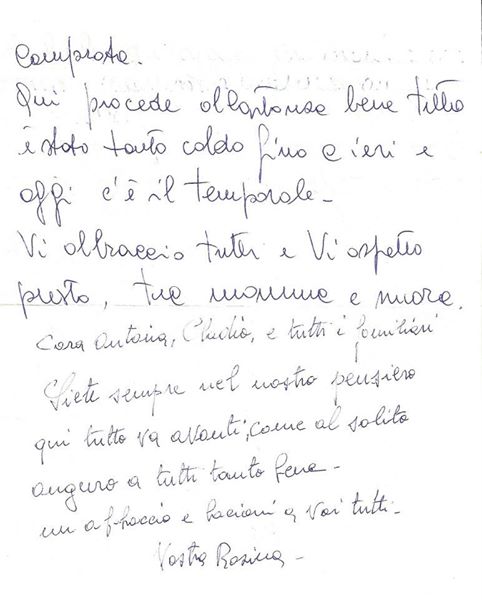 comprata.
Qui procede abbastanza bene tutto
è stato tanto caldo fino a ieri e
oggi c'è il temporale -
Vi abbraccio tutti e Vi aspetto
presto, tua mamma e nuora.
Cara Antonia, Claudio, e tutti i familiari
Siete sempre nel nostro pensiero
qui tutto va avanti, come al solito
auguro a tutti tanto bene -
un abbraccio e bacioni a voi tutti -
Vostra Rosina -